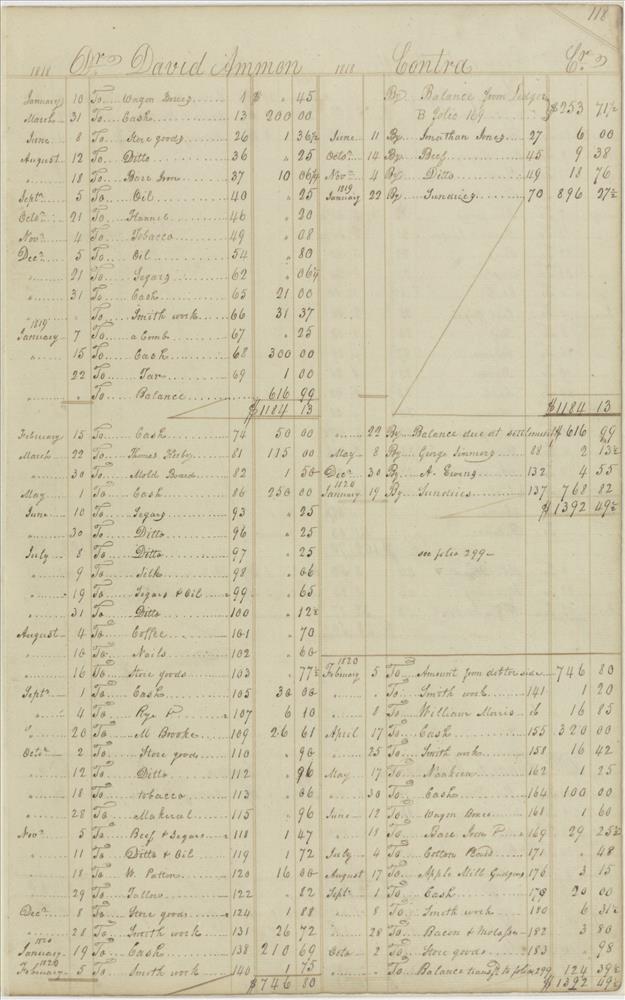 118
1818 Dr. David Ammon 1818 Contra Cr.
January 10 To Wagon Boxes 1 $ " 45
March 31 To Cash 13 200 00
June 8 To Store goods 26 1 36½
August 12 To Ditto 36 " 25
" 18 To Barr Iron 37 10 06¼
Sept. 5 To Oil 40 " 25
Octo. 21 To Flannel 46 " 20
Nov. 4 To Tobacco 49 " 08
Dec. 5 To Oil 54 " 80
" 21 To Segars 62 " 06¼
" 31 To Cash 65 21 00
" " To Smith work 66 31 37
1819
January 7 To a Comb 67 " 25
" 15 To Cash 68 300 00
22 To Tar 69 1 00
" " To Balance 616 99
$1184 13
February 15 To Cash 74 50 00
March 22 To Thomas Kirby 81 115 00
" 30 To Mold Board 82 1 50
May 1 To Cash 86 250 00
June 10 To Segars 93 " 25
" 30 To Ditto 96 " 25
July 8 To Ditto 97 " 25
" 9 To Silk 98 " 06
" 19 To Segars & Oil 99 " 65
" 31 To Ditto 100 " 12½
August 4 To Coffee 101 " 70
" 10 To Nails 102 " 60
" 16 To Store goods 103 " 77½
Sept. 1 To Cash 105 30 00
" 4 To Rye 107 6 10
" 20 To M Brooke 109 26 61
Octo. 2 To Store goods 110 " 90
" 12 To Ditto 112 " 96
" 18 To tobacco 113 " 06
" 28 To Makeral 115 " 96
Nov. 5 To Beef & Segars 118 1 47
" 11 To Ditto & Oil 119 1 72
" 18 To W. Patton 120 16 00
" 29 To Tallow 122 " 82
Dec. 8 To Store goods 124 1 88
" 28 To Smith work 131 26 72
1820
January 19 To Cash 138 210 69
1820
February 5 To Smith work 140 1 75
$746 80
By Balance from Ledger
B folio 169 $253 71½
June 11 By Jonathan Jones 27 6 00
Octo. 14 By Beef 45 9 38
Nov. 4 By Ditto 49 18 76
1819
January 22 By Sundries 70 896 27½
$1184 13
" 22 By Balance due at settlement $616 99
May 8 By George Simmons 88 2 13½
Dec. 30 By A. Ewing 132 4 55
1820
January 19 By Sundries 137 768 82
$1392 49½
see folio 299
1820
February 5 To Amount from debtor side 746 80
" " To Smith work 141 1 20
" 8 To William Morris ib 16 85
April 17 To Cash 155 320 00
" 25 To Smith work 158 16 42
May 17 To Nankeen 162 1 25
" 30 To Cash 164 100 00
June 12 To Wagon Boxes 168 1 60
" 18 To Barr Iron 169 29 25½
July 4 To Cotton 171 " 48
August 17 To Apple Mill Gudgeons 176 3 15
Sept. 1 To Cash 178 20 00
" 8 To Smith work 180 6 31½
" 28 To Bacon & Molasses 182 3 80
Octo. 2 To Store goods 183 " 98
" " To Balance transfd. to folio 299 124 39½
$1392 49½